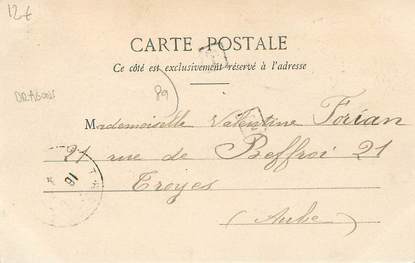 12€
CARTE POSTALE
Ce côté est exclusivement réservé à l'adresse
89
Mademoiselle Valentine Forian
21 rue de Beffroi 21
Troyes
(Aube)
18